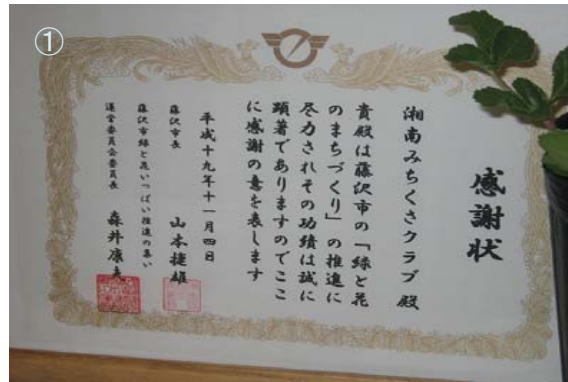 ①
感謝状
湘南みちくさクラブ 殿
貴殿は藤沢市の「緑と花
のまちづくり」の推進に
尽力されその功績は誠に
顕著でありますのでここ
に感謝の意を表します
平成十九年十一月四日
藤沢市長 山本捷雄
藤沢市緑と花いっぱい推進の集い
運営委員会委員長 森井康夫